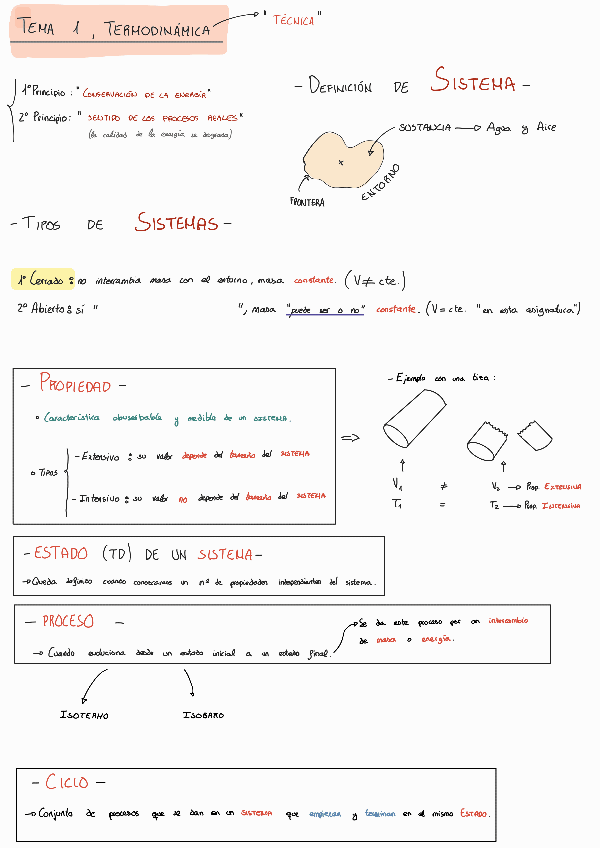 TEMA 1, TERMODINÁMICA → "TÉCNICA"
1º Principio: "CONSERVACIÓN DE LA ENERGÍA"
2º Principio: "SENTIDO DE LOS PROCESOS REALES"
(la calidad de la energía se degrada)
- DEFINICIÓN DE SISTEMA -
SUSTANCIA → Agua y Aire
FRONTERA
ENTORNO
- TIPOS DE SISTEMAS -
1º Cerrado: no intercambia masa con el entorno, masa constante. (V ≠ cte.)
2º Abierto: sí " ", masa "puede ser o no" constante. (V = cte. "en esta asignatura")
- PROPIEDAD -
Característica observable y medible de un SISTEMA.
TIPOS
- Extensivo: su valor depende del tamaño del SISTEMA
- Intensivo: su valor no depende del tamaño del SISTEMA
⇒
- Ejemplo con una tiza:
V1 ≠ V2 → Prop. EXTENSIVA
T1 = T2 → Prop. INTENSIVA
- ESTADO (TD) DE UN SISTEMA -
→ Queda definido cuando conocemos un nº de propiedades independientes del sistema.
- PROCESO -
→ Cuando evoluciona desde un estado inicial a un estado final.
→ Se da este proceso por un intercambio
de masa o energía.
ISOTERMO
ISOBARO
- CICLO -
→ Conjunto de procesos que se dan en un SISTEMA que empiezan y terminan en el mismo ESTADO.